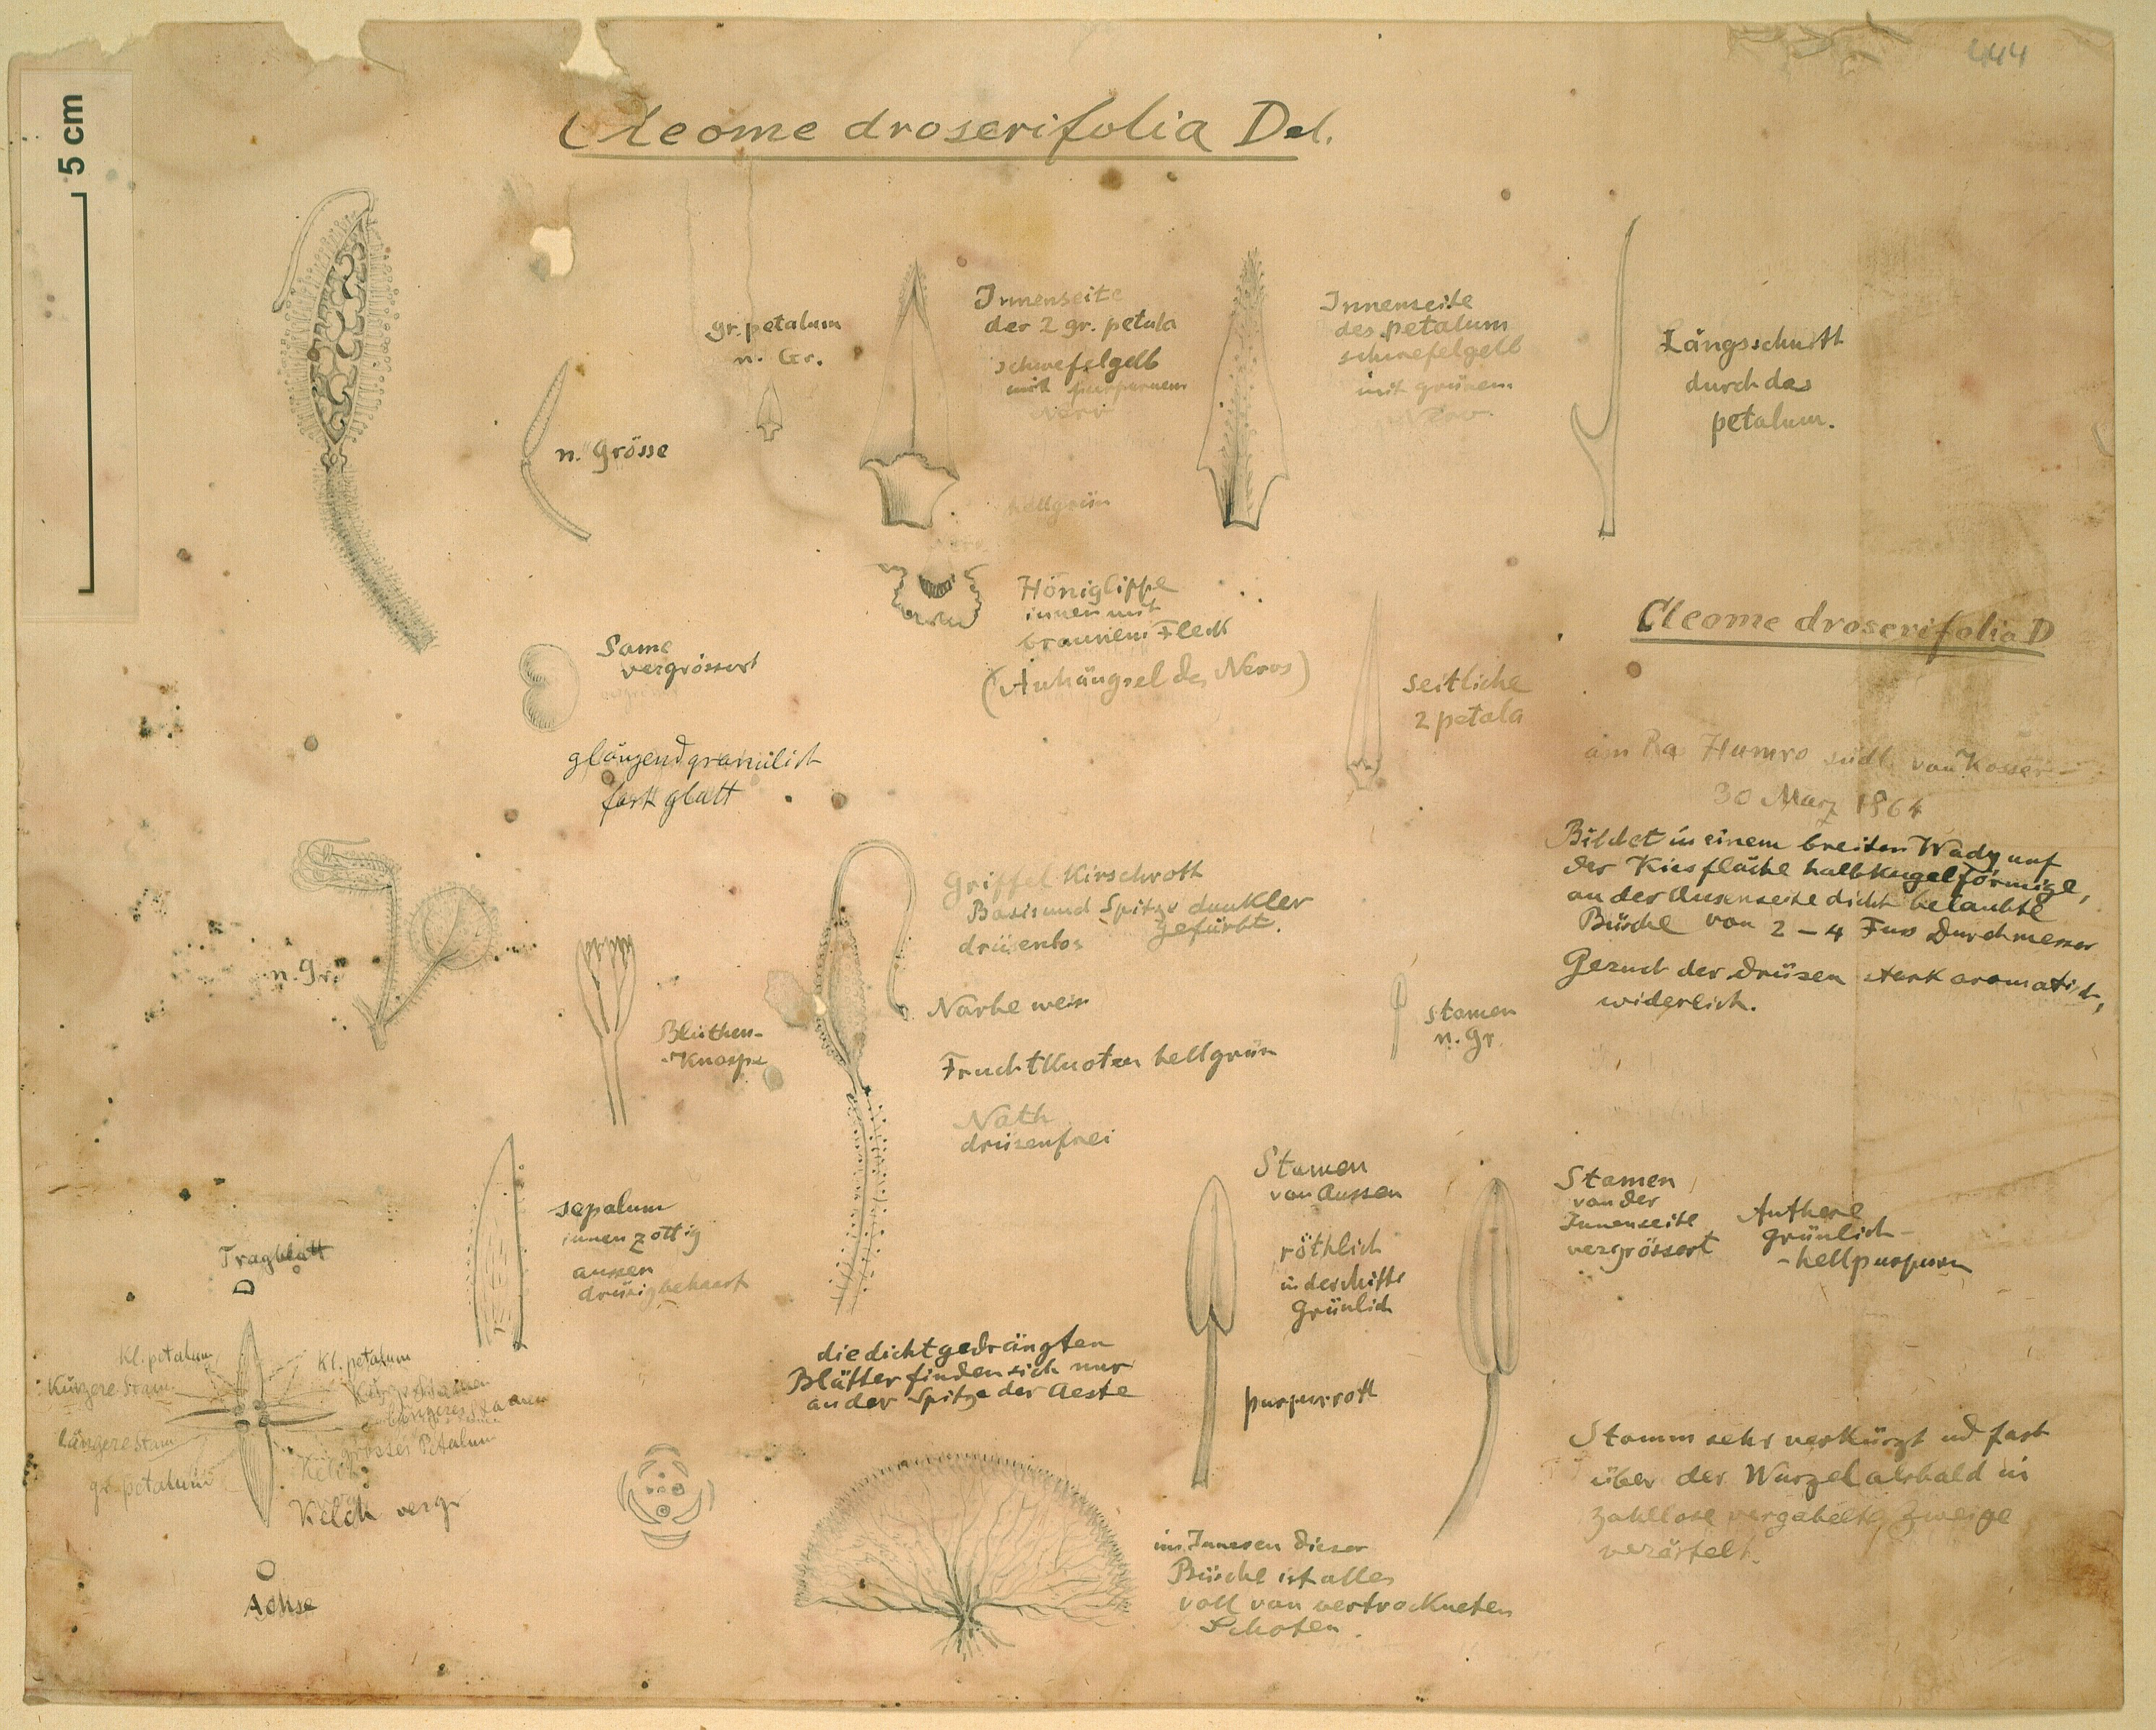 444
5 cm
Cleome droserifolia Del.
gr. petalum
n. Gr.
Innenseite
der 2 gr. petala
schwefelgelb
mit purpurnem
Nerv
Innenseite
des petalum
schwefelgelb
mit grünem
Nerv.
Längsschnitt
durch das
petalum.
n. Grösse
hellgrün
Honiglippe
innen mit
braunem Fleck
(Anhängsel des Nervs)
Same
vergrössert
glänzend granulirt
fast glatt
seitliche
2 petala
Cleome droserifolia D
am Ras Humro südl. von Kosser
30 März 1864
Bildet in einem breiten Wady auf
der Kiesfläche halbkugelförmige,
an der Ausenseite dicht belaubte
Büsche von 2 – 4 Fus Durchmesser
Geruch der Drüsen stark aromatisch,
widerlich.
Griffel Kirschroth
Basis und Spitze dunkler
gefärbt.
drüsenlos
n. Gr.
Narbe weis
Blüthen-
-Knospe
stamen
n. Gr.
Fruchtknoten hellgrün
Nath
drüsenfrei
sepalum
innen zottig
aussen
drüsig behaart
Stamen
von Aussen
röthlich
in der Mitte
Grünlich
purpurroth
Stamen
von der
Innenseite
vergrössert
Anthere
grünlich-
-hellpurpurn
Tragblatt
Kl. petalum
Kl. petalum
Kürzere Stam.
Kürz. stamen
längeres stamen
längere Stam
grosses Petalum
gr. petalum
Kelch
Kelch vergr
Achse
die dichtgedrängten
Blätter finden sich nur
an der Spitze der Aeste
im Inneren dieser
Büsche ist alles
voll von vertrockneten
Schoten.
Stamm sehr verkürzt ud fast
über der Wurzel alsbald in
zahllose vergabelte Zweige
verästelt.